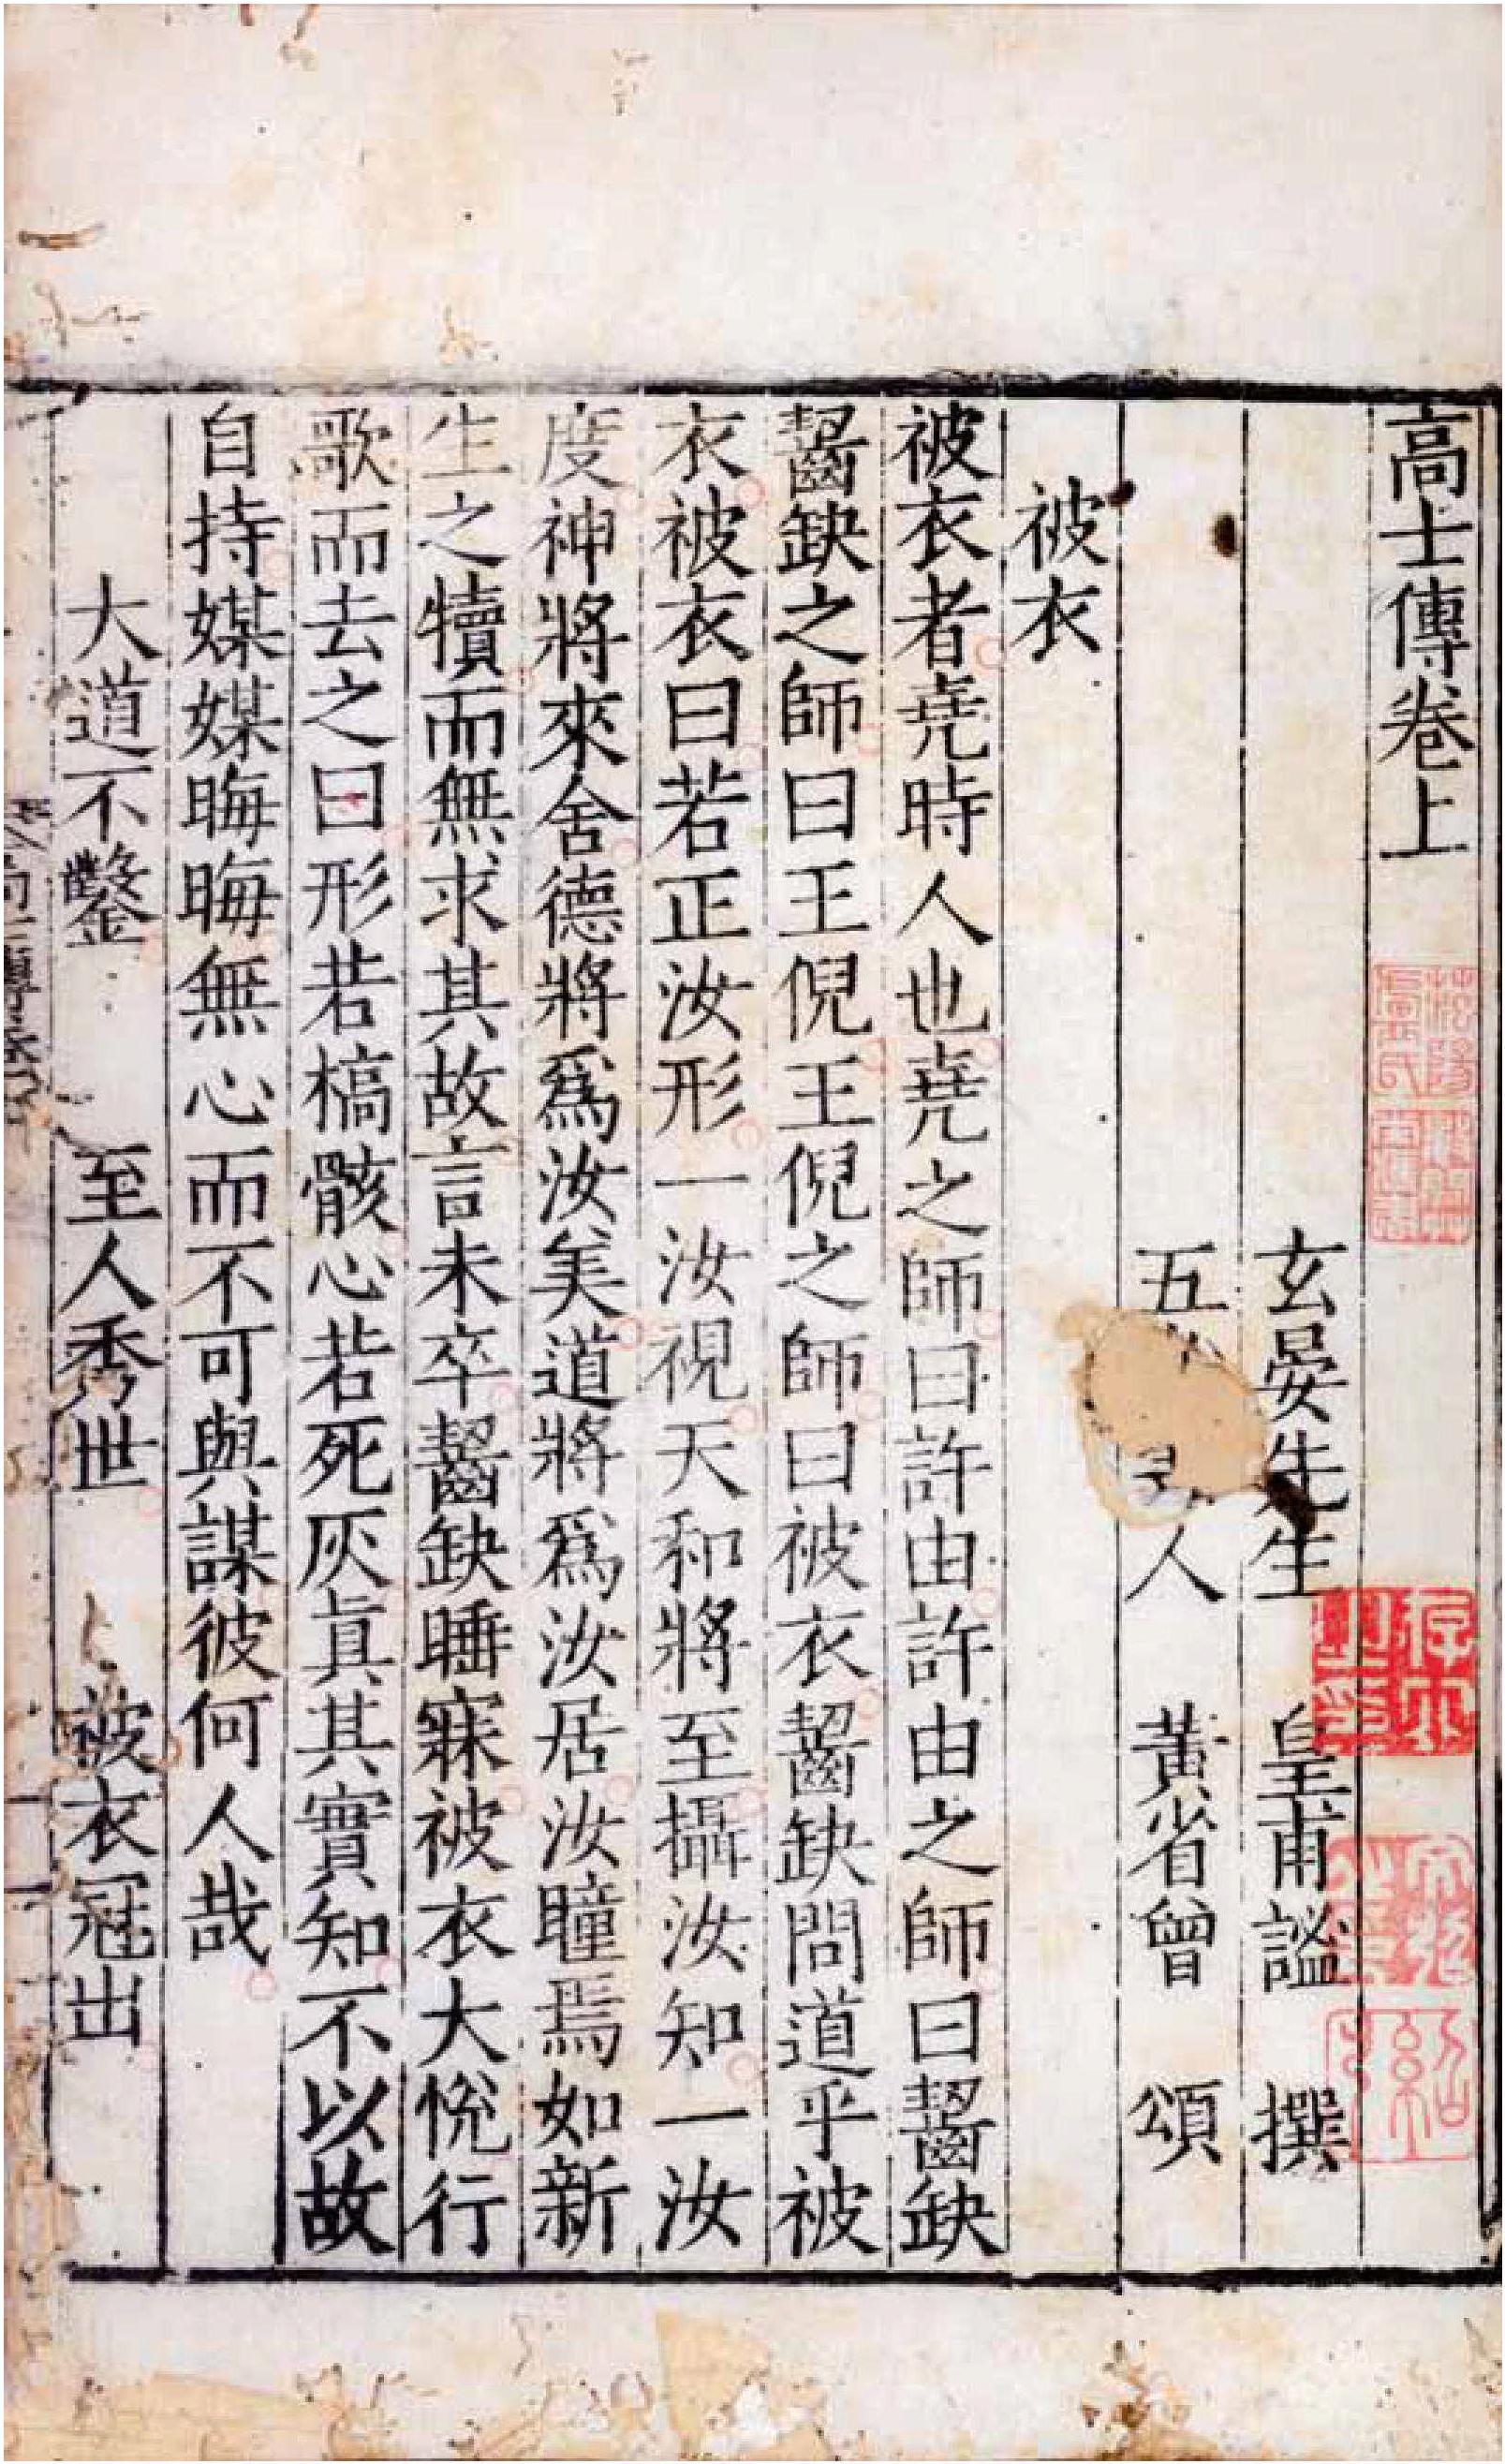 高士傳卷上
玄晏先生 皇甫謐 撰
五 人 黃省曾 頌
被衣
被衣者堯時人也堯之師曰許由許由之師曰齧缺
齧缺之師曰王倪王倪之師曰被衣齧缺問道乎被
衣被衣曰若正汝形一汝視天和將至攝汝知一汝
度神將來舍德將爲汝美道將爲汝居汝瞳焉如新
生之犢而無求其故言未卒齧缺睡寐被衣大悅行
歌而去之曰形若槁骸心若死灰眞其實知不以故
自持媒媒晦晦無心而不可與謀彼何人哉
大道不鑿 至人秀世 被衣冠出